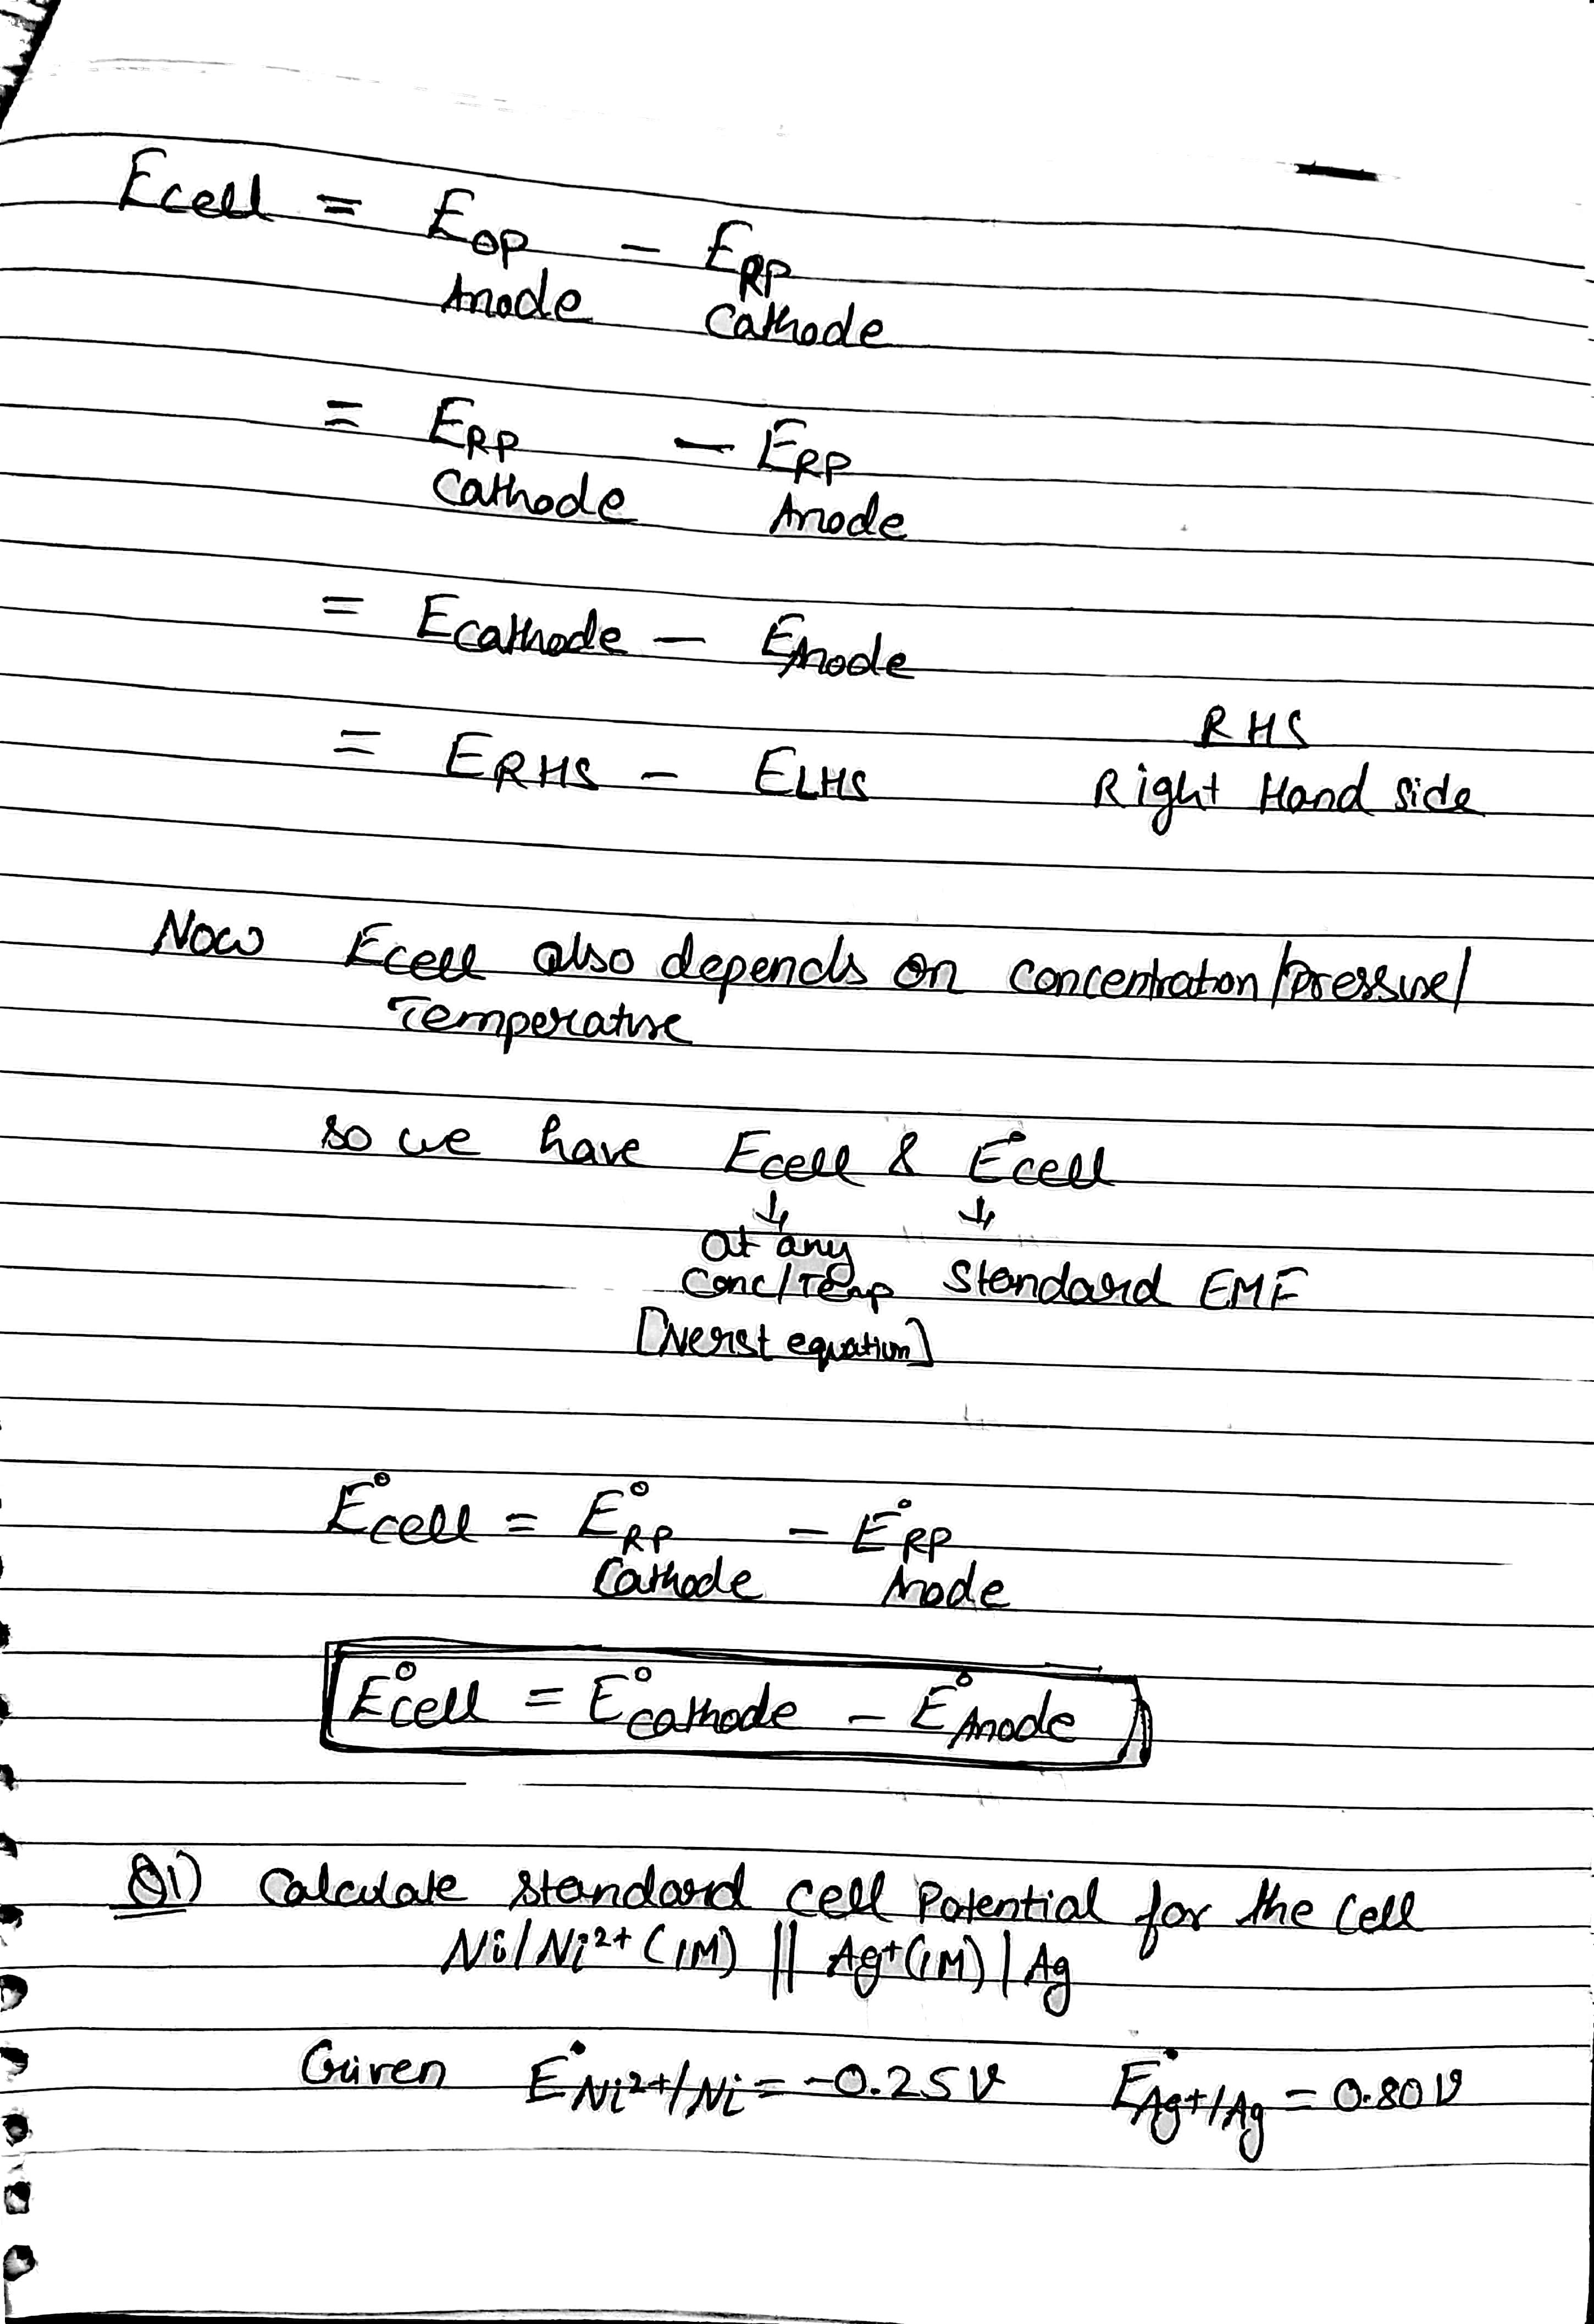 Ecell = EOP - ERP
Anode Cathode
= ERP - ERP
Cathode Anode
= Ecathode - EAnode
= ERHS - ELHS
RHS
Right Hand Side
Now Ecell also depends on concentration/pressure/
Temperature
so we have Ecell & E°cell
↓ ↓
at any
Conc/Temp Standard EMF
[Nerst equation]
E°cell = E°RP - E°RP
Cathode Anode
E°cell = E°cathode - E°Anode
Q1) Calculate standard cell Potential for the Cell
Ni/Ni²⁺(1M) || Ag⁺(1M) | Ag
Given E°Ni²⁺/Ni = -0.25V E°Ag⁺/Ag = 0.80V